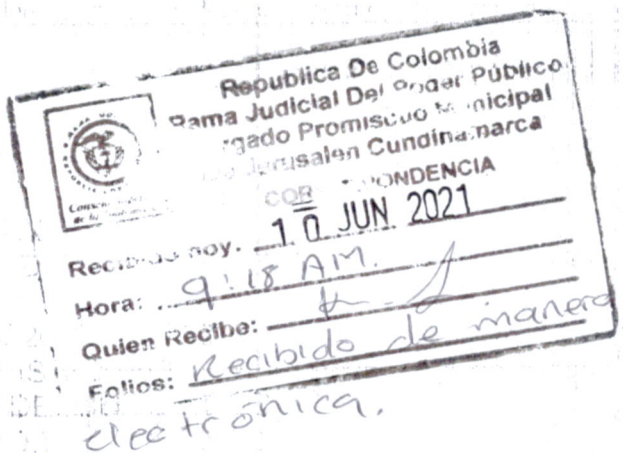 Republica De Colombia
Rama Judicial Del Poder Público
Promiscuo Municipal
Jerusalen Cundinamarca
CORRESPONDENCIA
Recibido hoy. 10 JUN 2021
Hora: 9:18 AM.
Quien Recibe:
Folios: Recibido de manera
electrónica.